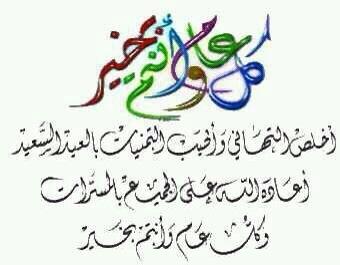 كل عام وأنتم بخير
أخلص التهاني وأطيب التمنيات بالعيد السعيد
أعاده الله على الجميع بالمسرات
وكل عام وأنتم بخير